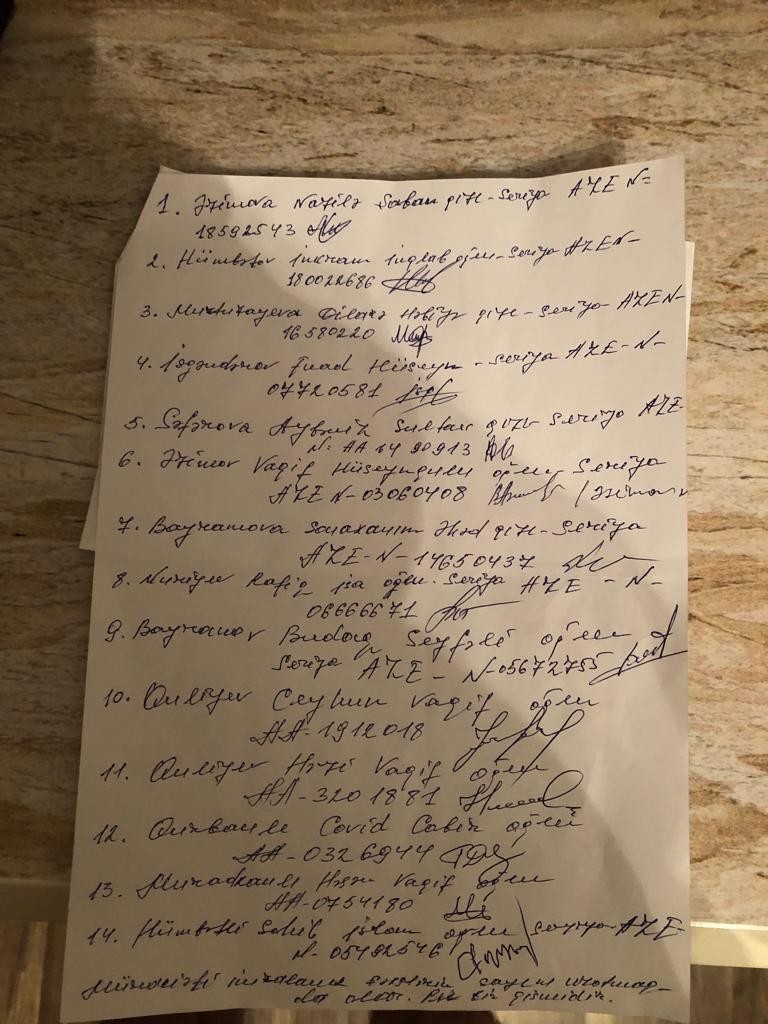 1. Əzimova Nazilə Şaban qızı - Seriya AZE N=
18592543
2. Hümbətov İnkram İnqlab oğlu - Seriya AZE N-
180022686
3. Murtuzayeva Dilarə qızı - Seriya AZE N-
16580220
4. İsgəndərov Fuad Hüseyn - Seriya AZE - N -
07720581
5. Səfərova Aybəniz Sultan qızı Seriya AZE-
N: AA 14 90913
6. Əzimov Vaqif Hüseynqulu oğlu Seriya
AZE N-03060408
7. Bayramova Sonaxanım Əhəd qızı - Seriya
AZE-N-14650437
8. Nuriyev Rafiq İsa oğlu. Seriya AZE - N -
06666671
9. Bayramov Budaq Seyfəli oğlu
Seriya AZE - N-05672755
10. Quliyev Ceyhun Vaqif oğlu
AA-1912018
11. Quliyev Vaqif oğlu
AA-3201881
12. Qurbanlı Cavid Cabir oğlu
AA-0326944
13. Muradxanlı Həsən Vaqif oğlu
AA-0754180
14. Hümbətli Sahib İslam oğlu / seriya AZE-
N-05492546
Müraciəti imzalayan şəxslərin sayını
olar.